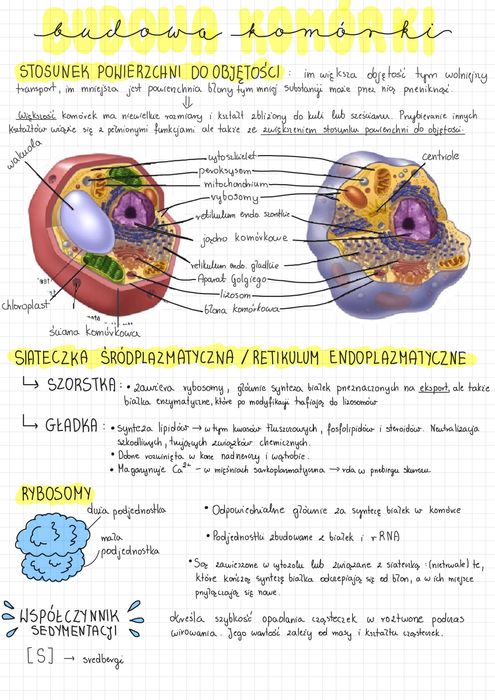 BUDOWA KOMÓRKI
budowa komórki
STOSUNEK POWIERZCHNI DO OBJĘTOŚCI : im większa objętość tym wolniejszy
transport, im mniejsza jest powierzchnia błony tym mniej substancji może przez nią przeniknąć.
Większość komórek ma niewielkie rozmiary i kształt zbliżony do kuli lub sześcianu. Przybieranie innych
kształtów wiąże się z pełnionymi funkcjami ale także ze zwiększeniem stosunku powierzchni do objętości.
wakuola
cytoszkielet
centriole
peroksysom
mitochondrium
rybosomy
retikulum endo. szorstkie
jądro komórkowe
retikulum endo. gładkie
Aparat Golgiego
lizosom
błona komórkowa
chloroplast
ściana komórkowa
SIATECZKA ŚRÓDPLAZMATYCZNA / RETIKULUM ENDOPLAZMATYCZNE
↳ SZORSTKA : • zawiera rybosomy, głównie synteza białek przeznaczonych na eksport, ale także
białka enzymatyczne, które po modyfikacji trafiają do lizosomów
↳ GŁADKA : • synteza lipidów → w tym kwasów tłuszczowych, fosfolipidów i steroidów. Neutralizacja
szkodliwych, trujących związków chemicznych.
• Dobrze rozwinięta w korze nadnerczy i wątrobie.
• Magazynuje Ca²⁺ - w mięśniach sarkoplazmatyczna → rola w przebiegu skurczu.
RYBOSOMY
duża podjednostka
mała
podjednostka
• Odpowiedzialne głównie za syntezę białek w komórce
• Podjednostki zbudowane z białek i rRNA
• Są zawieszone w cytozolu lub związane z siateczką (nietrwale) te,
które kończą syntezę białka odczepiają się od błon, a w ich miejsce
przyłączają się nowe.
WSPÓŁCZYNNIK
SEDYMENTACJI
określa szybkość opadania cząsteczek w roztworze podczas
wirowania. Jego wartość zależy od masy i kształtu cząsteczek.
[S] → svedbergi